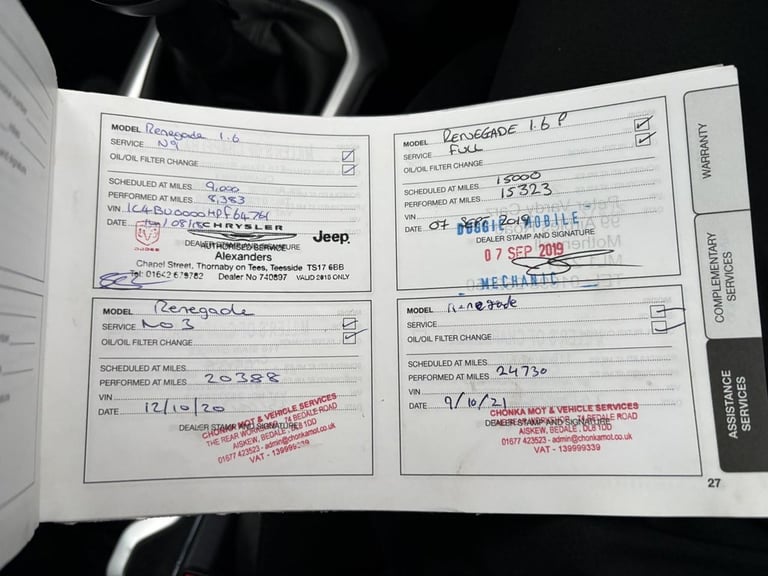 MODEL Renegade 1.6
SERVICE N9
OIL/OIL FILTER CHANGE
SCHEDULED AT MILES 9,000
PERFORMED AT MILES 8,383
VIN
DATE
CHRYSLER
DODGE
Jeep
DEALER STAMP AND SIGNATURE
AUTHORISED SERVICE
Alexanders
Chapel Street, Thornaby on Tees, Teesside TS17 6BB
Tel: 01642 679782 Dealer No 740897 VALID 2018 ONLY
MODEL RENEGADE 1.6 P
SERVICE FULL
OIL/OIL FILTER CHANGE
SCHEDULED AT MILES 15000
PERFORMED AT MILES 15323
VIN
DATE 07 SEPT 2019
DOGGIE MOBILE
DEALER STAMP AND SIGNATURE
07 SEP 2019
MECHANIC
MODEL Renegade
SERVICE No 3
OIL/OIL FILTER CHANGE
SCHEDULED AT MILES
PERFORMED AT MILES 20388
VIN
DATE 12/10/20
DEALER STAMP AND SIGNATURE
CHONKA MOT & VEHICLE SERVICES
THE REAR WORKSHOP, 74 BEDALE ROAD
AISKEW, BEDALE, DL8 1DD
01677 423523 - admin@chonkamot.co.uk
VAT - 139999339
MODEL Renegade
SERVICE
OIL/OIL FILTER CHANGE
SCHEDULED AT MILES
PERFORMED AT MILES 24730
VIN
DATE 9/10/21
CHONKA MOT & VEHICLE SERVICES
DEALER STAMP AND SIGNATURE
74 BEDALE ROAD
AISKEW, BEDALE, DL8 1DD
01677 423523 - admin@chonkamot.co.uk
VAT - 139999339
WARRANTY
COMPLEMENTARY
SERVICES
ASSISTANCE
SERVICES
27